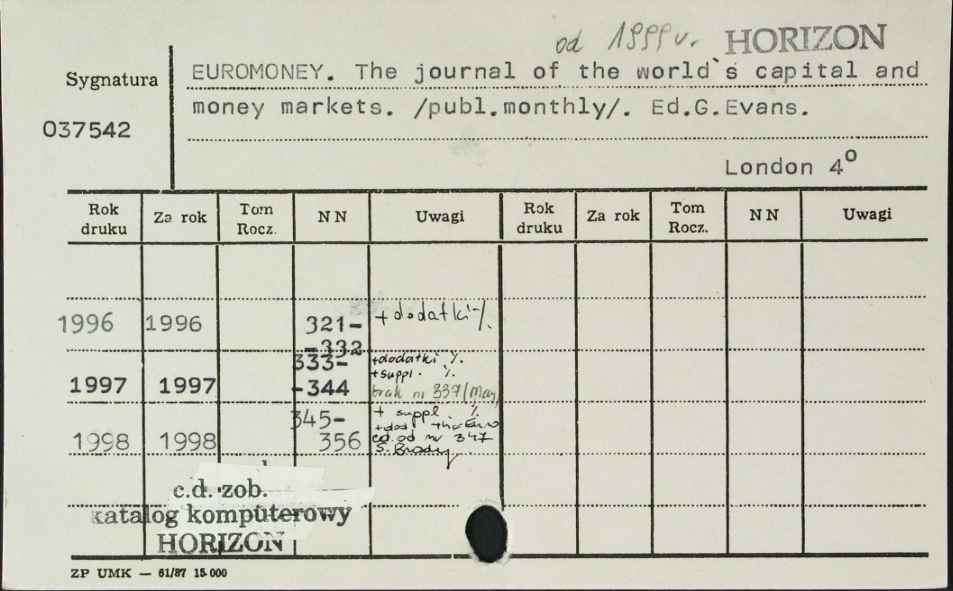 od 1999 r. HORIZON
Sygnatura
037542
EUROMONEY. The journal of the world`s capital and
money markets. /publ.monthly/. Ed.G.Evans.
London 4°
Rok druku Za rok Tom Rocz. NN Uwagi Rok druku Za rok Tom Rocz. NN Uwagi
1996 1996 321- + dodatki
-332
1997 1997 333- +dodatki
-344 + suppl.
brak nr 337/May
1998 1998 345- + suppl.
356 +dod. Euro
ed. od nr 347
S. Brady
c.d. zob.
katalog komputerowy
HORIZON
ZP UMK — 61/87 15.000